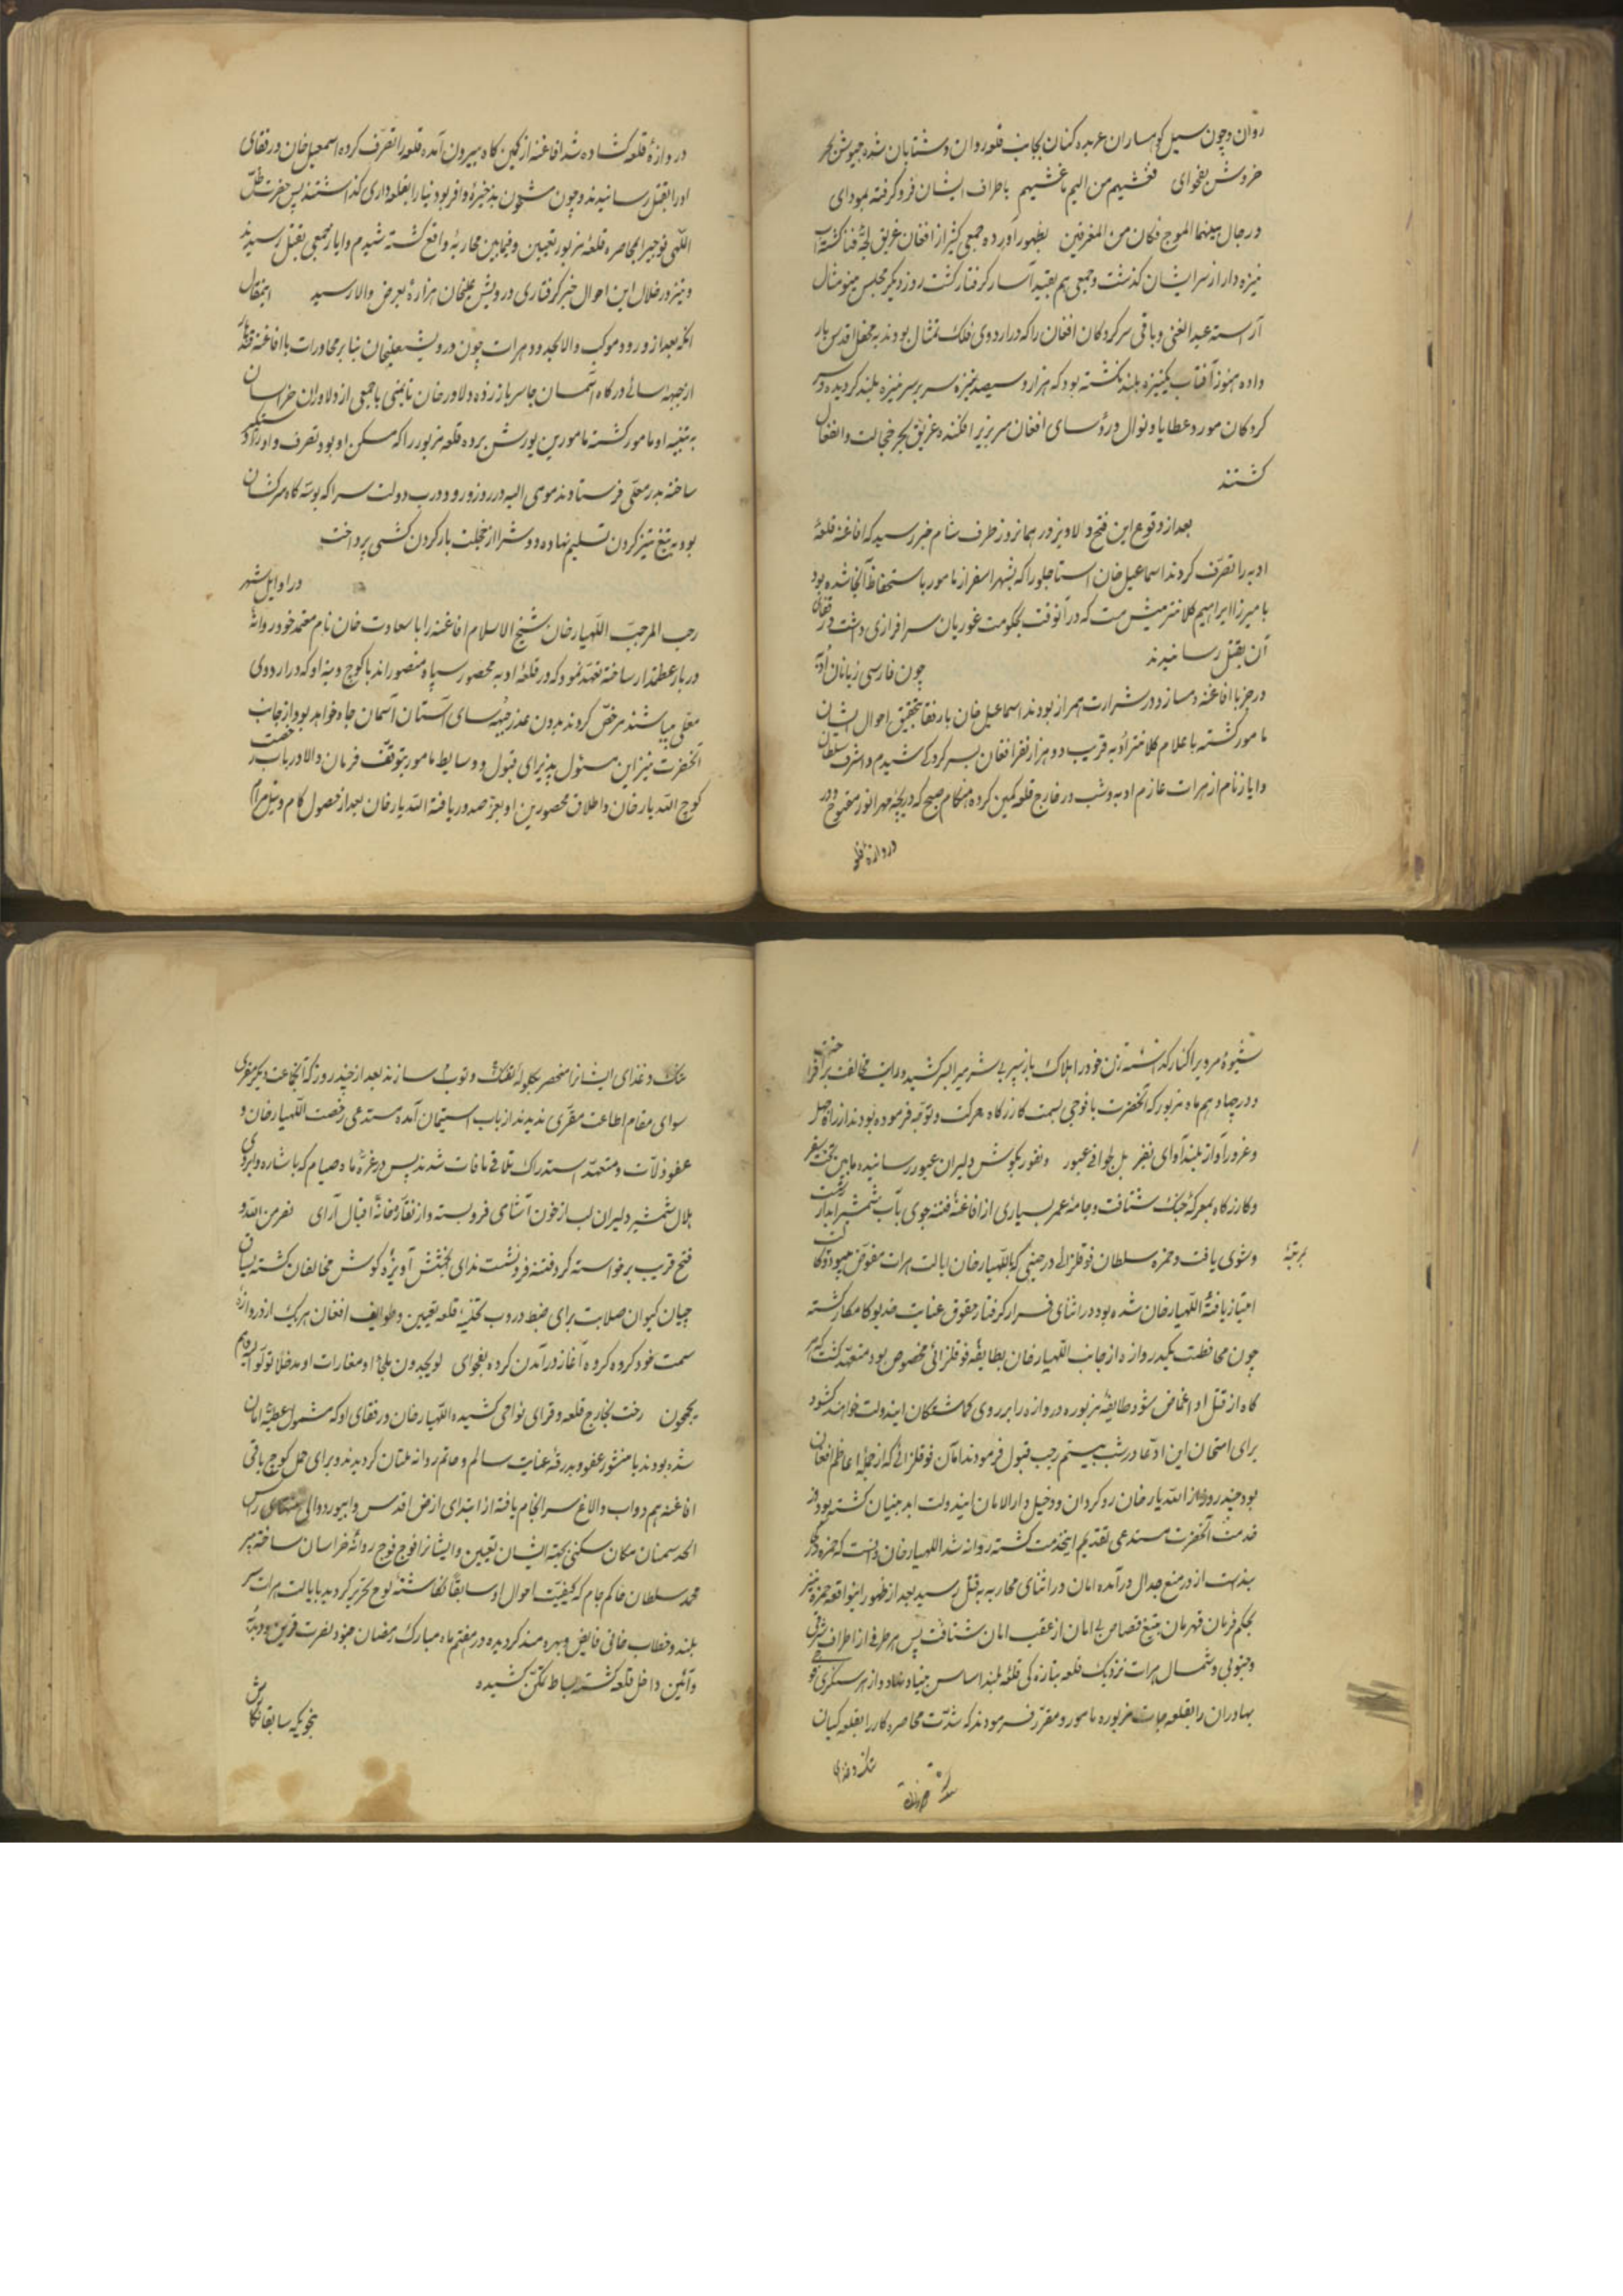 روان و چون سیل کوهساران عربده کنان بجانب قلعه روان و شتابان شده جیوش بحر
خروش بفحوای فغشیهم من الیم ما غشیهم باطراف ایشان فرو گرفته بمودای
و حال بینهما الموج فکان من المغرقین بظهور آورده جمعی کثیر از افغان غریق لجهٔ فنا گشته آب
نیزه دار از سر ایشان گذشت و جمعی هم بقید اسار گرفتار گشت روز دیگر مجلس مینو مثال
آراسته عبد الغنی و باقی سرکردکان افغان را که در اردوی فلک تمثال بودند به محفل اقدس بار
داده هنوز آفتاب یکنیزه بلند نگشته بود که هزار و سیصد نیزه سر بر سر نیزه بلند گردیده و سر
کردکان مورد عطایا و نوال و رؤسای افغان سر بزیر افکنده غریق بحر خجالت و انفعال
گشتند
بعد از وقوع این فتح دلاویز در همانروز طرف شام خبر رسید که افاغنه قلعهٔ
ادبه را تصرف کردند اسماعیل خان استاجلو را که بشهر اسفزاز مامور باستحفاظ آنجا شده بود
با میرزا ابراهیم کلانتر میش مست که در آنوقت بحکومت غوریان سرافرازی داشت و رفقای
آن بقتل رسانیدند چون فارسی زبانان ادبه
در خربا افاغنه دمساز و در شرارت همراز بودند اسماعیل خان با رفقا بتحقیق احوال ایشان
مامور گشته با علام کلانتر ادبه قریب دو هزار نفر افغان بسرکردکی شیدم و اشرف سلطان
و ایاز نام از هرات عازم ادبه و شب در خارج قلعه کمین کرده هنگام صبح که دریچهٔ مهر انور مفتوح و در
دروازهٔ قلعه
دروازهٔ قلعه گشاده شد افاغنه از کمین گاه بیرون آمده قلعه را تصرف کرده اسمعیل خان و رفقای
او را بقتل رسانیدند و چون مشحون بذخیرهٔ وافر بود بنا را بقلعه داری گذاشتند پس حضرت ظل
اللهی فوجی را بمحاصره قلعهٔ مزبور تعیین و فیمابین محاربهٔ واقع گشته شیدم و ایاز با جمعی بقتل رسیدند
و نیز در خلال این احوال خبر گرفتاری درویش علیخان هزاره بعرض والا رسید اینمقال
انکه بعد از ورود موکب والا بحدود هرات چون درویشعلیخان بنا بر محاورات با افاغنه قندهار
از جبهه سائی درگاه آسمان جاه سر باز زده دلاور خان تایمنی با جمعی از دلاوران خراسان
به تنبیه او مامور گشته مامورین یورش برده قلعه مزبور را که مسکن او بود تصرف و او را دستگیر
ساخته بدر معلی فرستادند مومی الیه در روز ورود در درب دولت سرا که بوسه گاه سرکشان
بود به تیغ تیز گردن تسلیم نهاده دوش را از خجلت بار گردن کشی پرداخت
در اوایل شهر
رجب المرجب اللهیار خان شیخ الاسلام افاغنه را با سعادت خان نام معتمد خود روانهٔ
دربار عظمتمدار ساخته تعهد نمود که در قلعهٔ ادبه محصور سپاه منصور اند با کوچ و بنه او که در اردوی
معلی میباشند مرخص کردند بدون عذر جبهه سای آستان آسمان جاه خواهد بود از جانب
آنحضرت نیز این مسئول پذیرای قبول و وسایط مامور بتوقف فرمان والا در باب رخصت
کوچ الله یار خان و اطلاق محصورین او بعز صدور یافته الله یار خان بعد از حصول کام و نیل مرام
شیوهٔ مردیرا کنار گذاشته زن خود را هلاک باز سپر بی شرمیرا بر سر کشیده رایت مخالفت برافراخت
و در چهاردهم ماه مزبور که آنحضرت با فوجی بسمت کازرگاه حرکت و توجه فرموده بودند از راه جهل
و غرور آواز بلند آوای نفیر بل لجوا فی عتو و نفور بگوش دلیران غیور رسانیده مابین تخت سفر
و کازرگاه بمعرکهٔ جنگ شتافت و جامهٔ عمر بسیاری از افاغنهٔ فتنه جوی بآب شمشیر آبدار
شست و شوی یافت و حمزه سلطان فوفلزائی در حینی که باللهیار خان ایالت هرات مفوض میبود و کان
بمرتبهٔ
امتیاز یافتهٔ اللهیار خان شده بود در اثنای فرار گرفتار حقوق عنایت خدیو کامکار گشته
چون محافظت یکدروازه از جانب اللهیار خان بطایفهٔ فوفلزائی مخصوص بود متعهد گشت که هر
گاه از قتل او اغماض شود طایفهٔ مزبوره دروازه را بر روی گماشتگان ایندولت خواهند گشود
برای امتحان این ادعا در شب بیستم رجب قبول فرمودند امان فوفلزائی که از جملهٔ اعاظم افغان
بود چند روز از الله یار خان رو گردان و دخیل دار الامان ایندولت ابد بنیان گشته بود در
خدمت آنحضرت مستدعی تقدیم اینخدمت گشته روانه شد اللهیار خان دانست که حمزه
از در منع جدال در آمده امان در اثنای محاربه بقتل رسید بعد از ظهور اینواقعه حمزه نیز
بحکم فرمان قهرمان بتیغ قصاص بی امان از عقب امان شتافت پس هر طرفی از اطراف شرقی
و جنوبی و شمال هرات نزدیک قلعه بتازه کی قلعهٔ بلند اساس بنیاد نهاد و از هر سنگری فوجی
بهادران را بقلعه جات مزبوره مامور و مقرر فرمودند که شدت محاصره کار را بقلعه کیان
تنک و غذای
تنک و غذای ایشانرا منحصر بگلولهٔ تفنگ و توپ سازند بعد از چند روز که آنجماعت دیگر مفری
سوای مقام اطاعت مقری ندیدند از باب استیمان آمده مستدعی رخصت اللهیار خان و
عفو زلات و متعهد استدراک تلافی مافات شدند پس در غرهٔ ماه صیام که باشاره ابروی
هلال شمشیر دلیران لب از خون آشامی فرو بسته و از نقاره خانهٔ اقبال آوای نصر من الله و
فتح قریب برخواسته گرد فتنه فرو نشست ندای بخشش آویزهٔ گوش مخالفان گشته نسقچیان
چیان کیوان صلابت برای ضبط دروب و تخلیهٔ قلعه تعیین و طوایف افغان هر یک از دروازهٔ
سمت خود گروه گروه آغاز در آمدن کرده بفحوای لو یجدون ملجأ او مغارات او مدخلا لولوا الیه و هم
یجمحون رخت بخارج قلعه و قرای نواحی کشیده اللهیار خان و رفقای او که مشمول عطیهٔ امان
شده بودند با منشور عفو و بدرقهٔ عنایت سالم و غانم روانه ملتان گردیدند و برای حمل کوچ باقی
افاغنه هم دواب و الاغ سرانجام یافته از ابتدای ارض اقدس و ابیورد و الی منتهای راس
الحد سمنان مکان سکنی بجهة ایشان تعیین و ایشانرا فوج فوج روانهٔ خراسان ساخته پیر
محمد سلطان حاکم جام که کیفیت احوال او سابقا نگاشتهٔ لوح تحریر گردید بایالت هرات سر
بلند و خطاب خانی فایض و بهره مند گردیده در هفتم ماه مبارک رمضان جنود نصرت قرین و دبدبه
و آئین داخل قلعه گشته بساط تمکن کشیده
بنحویکه سابقا نگارش